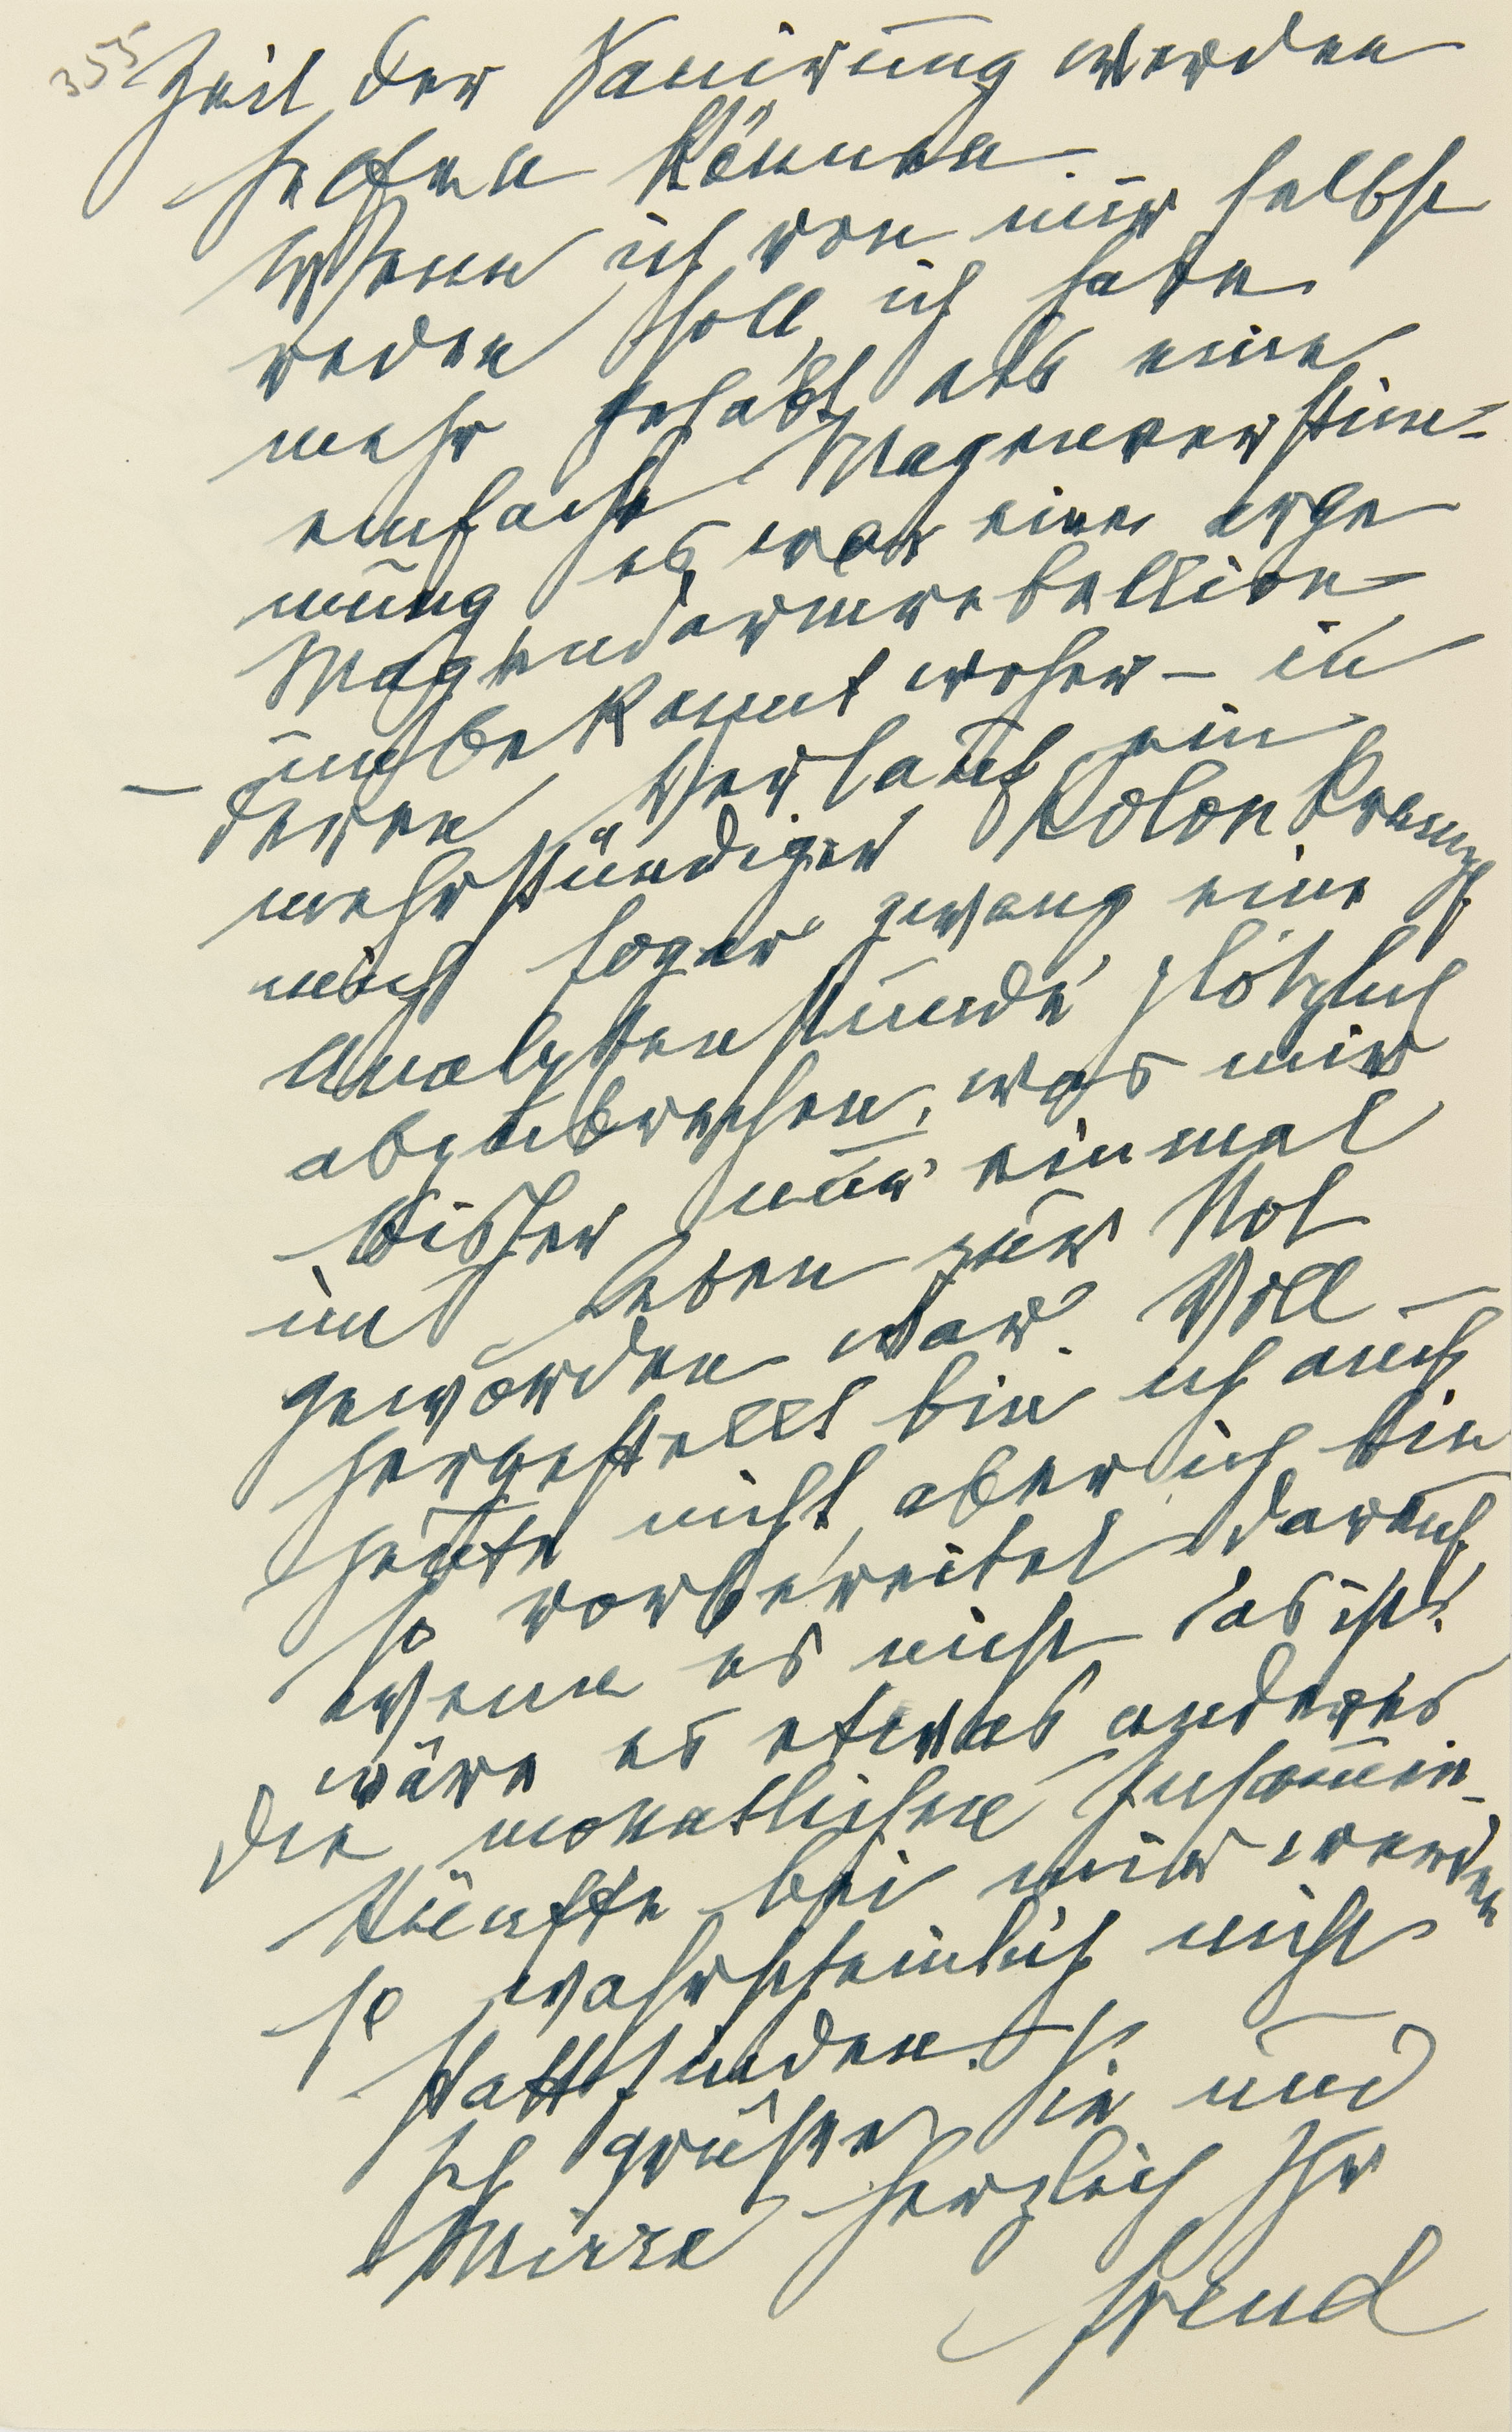 355
Zeit der Sanirung werden
helfen können.
Wenn ich von mir selbst
reden soll, ich habe
mehr gehabt als eine
einfache Magenverstim-
mung es war eine arge
Magendarmrebellion
– unbekannt woher – in
deren Verlauf ein
mehrstündiger Kolonkrampf
mich sogar zwang eine
Analysenstunde plötzlich
abzubrechen, was mir
bisher nur einmal
im Leben zur Not
geworden war. Voll-
hergestellt bin ich auch
heute nicht, aber ich bin
so vorbereitet darauf
wenn es nicht das ist,
wäre es etwas anderes
Die monatlichen Zusammen-
künfte bei mir werden
so wahrscheinlich nicht
stattfinden.
Ich grüße Sie und
Mirra herzlich Ihr
Freud